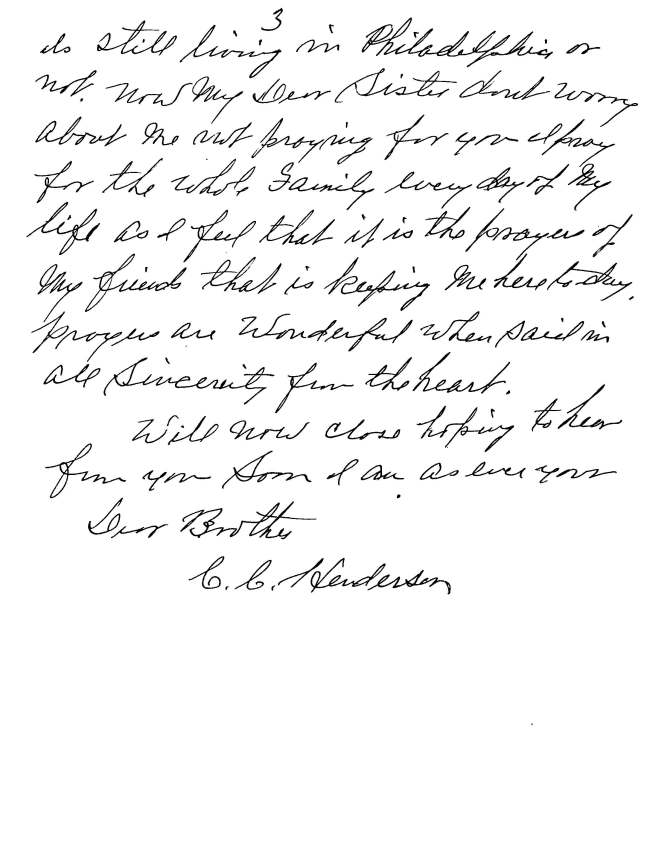 3
is still living in Philadelphia or
not. now My Dear Sister dont worry
about Me not praying for you I pray
for the whole Family every day of My
life as I feel that it is the prayers of
My friends that is keeping Me here to day.
prayers are Wonderful when said in
all Sincereity from the heart.
Will now close hoping to hear
from you Soon I am as ever your
Dear Brother
C. C. Henderson